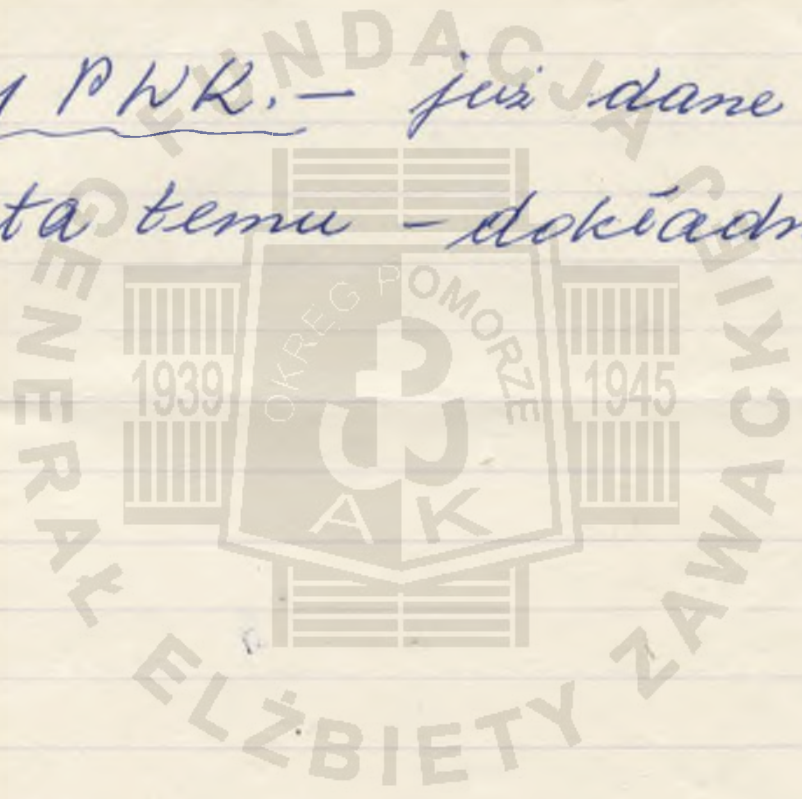 PWK. – już dane
ta temu – dokładn
FUNDACJA GENERAŁ ELŻBIETY ZAWACKIEJ
OKRĘG POMORZE
1939 1945
AK